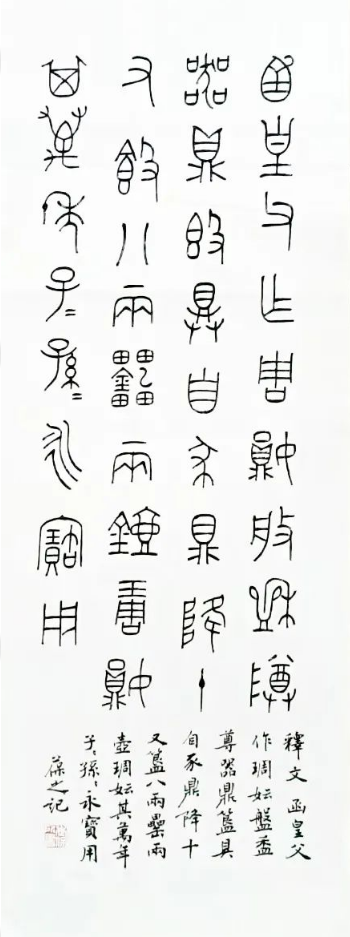 函皇父乍琱妘盤盉尊
器鼎簋具自豕鼎降十
又簋八兩罍兩壺琱妘
其萬年子〻孫〻永寶用
釋文 函皇父
作琱妘盤盉
尊器鼎簋具
自豕鼎降十
又簋八兩罍兩
壺琱妘其萬年
子〻孫〻永寶用
葆之記